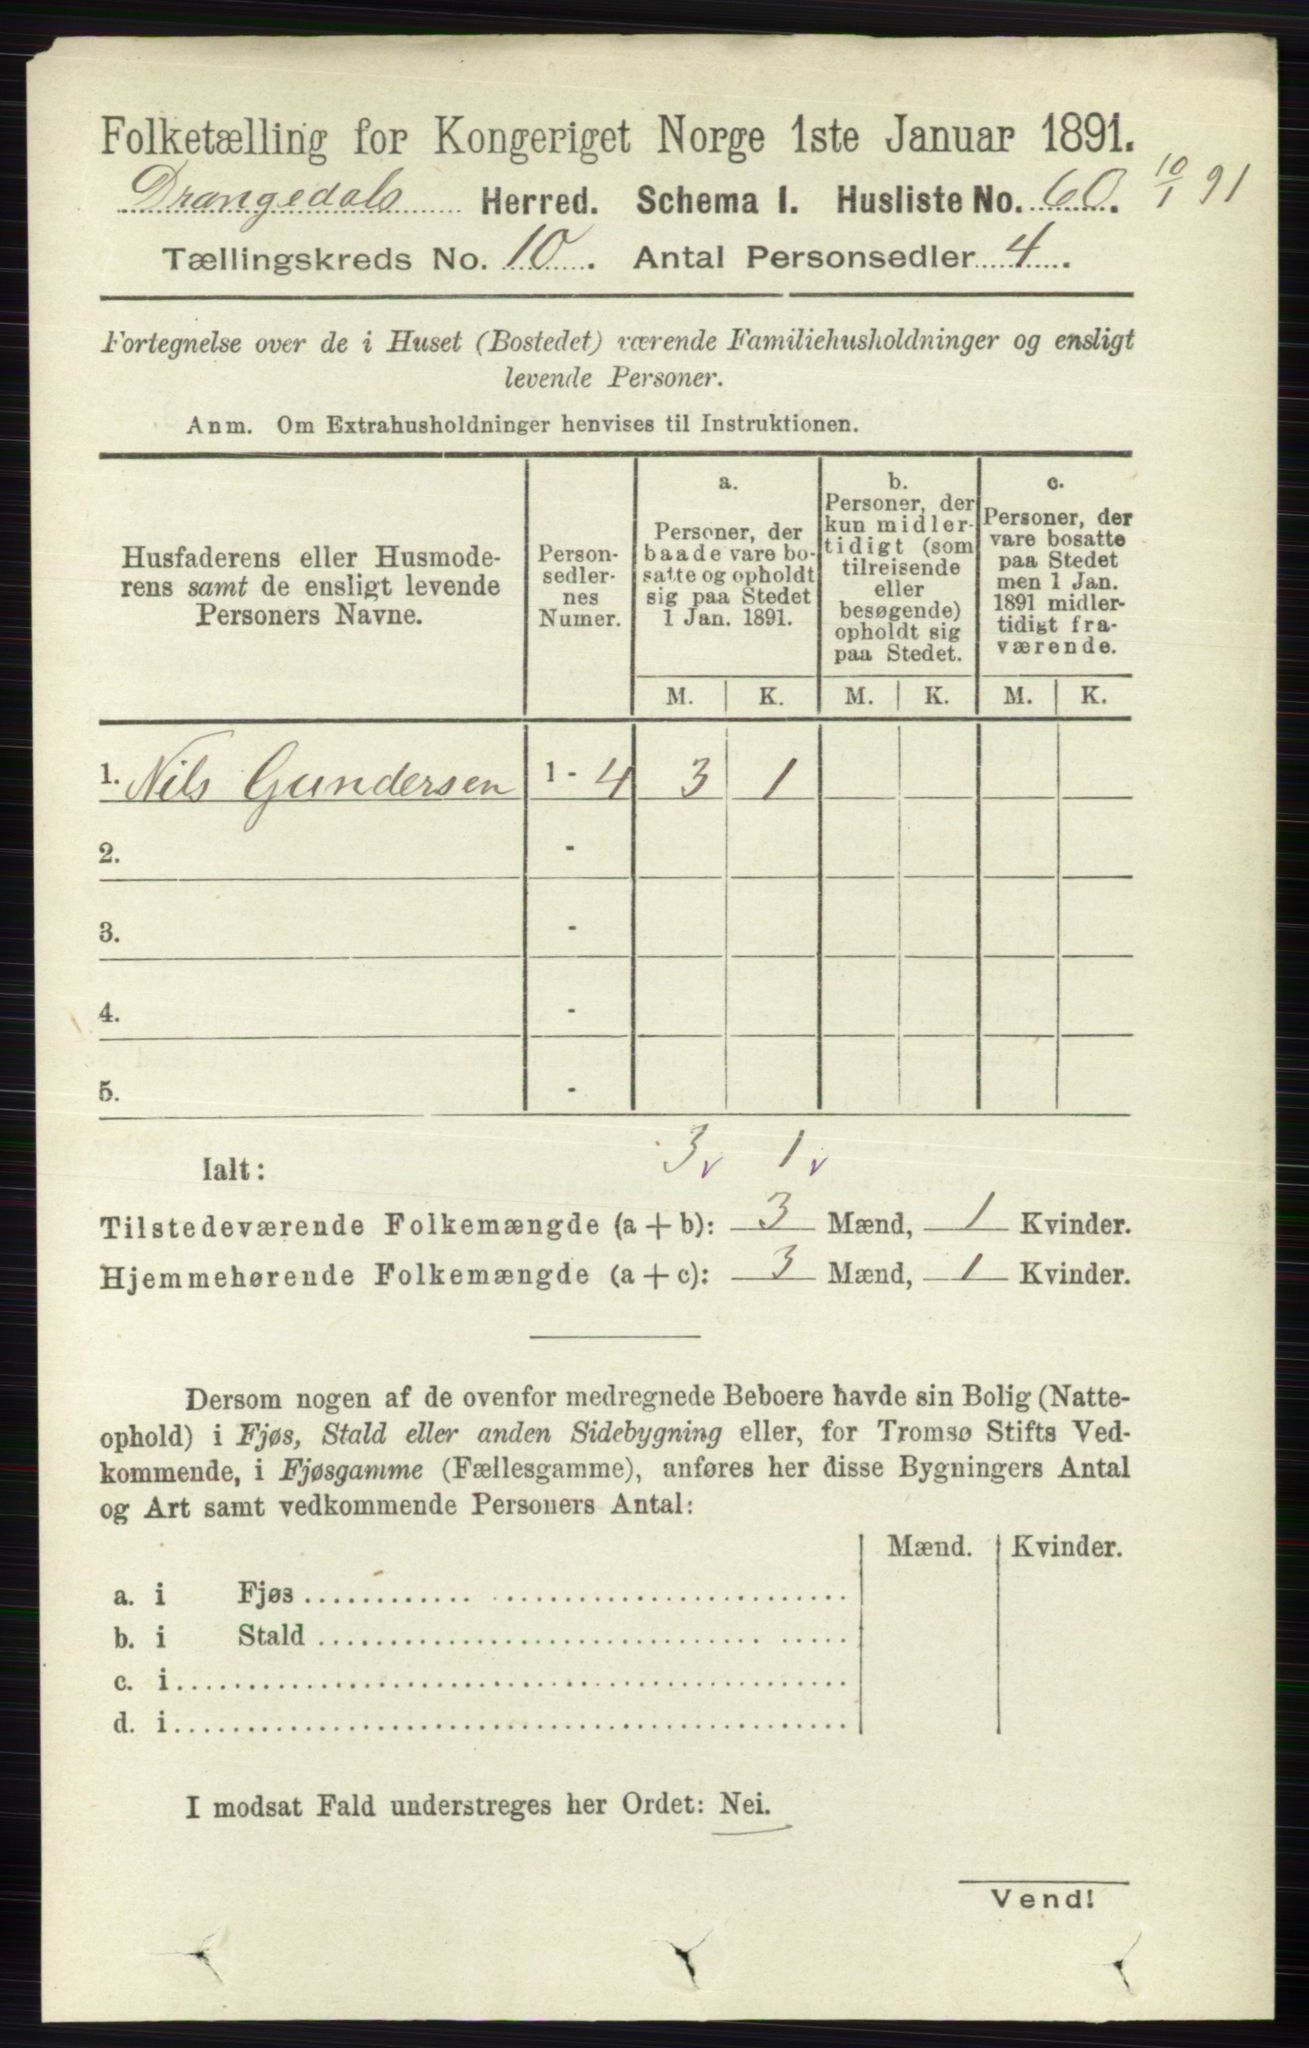 Folketælling for Kongeriget Norge 1ste Januar 1891.
Drangedals Herred. Schema I. Husliste No. 60. 10/1 91
Tællingskreds No. 10. Antal Personsedler 4.
Fortegnelse over de i Huset (Bostedet) værende Familiehusholdninger og ensligt
levende Personer.
Anm. Om Extrahusholdninger henvises til Instruktionen.
Husfaderens eller Husmode-
rens samt de ensligt levende
Personers Navne.
Person-
sedler-
nes
Numer.
a.
Personer, der
baade vare bo-
satte og opholdt
sig paa Stedet
1 Jan. 1891.
b.
Personer, der
kun midler-
tidigt (som
tilreisende
eller
besøgende)
opholdt sig
paa Stedet.
c.
Personer, der
vare bosatte
paa Stedet
men 1 Jan.
1891 midler-
tidigt fra-
værende.
M. K. M. K. M. K.
1. Nils Gundersen 1 - 4 3 1
2. -
3. -
4. -
5. -
3 v 1 v
Ialt:
Tilstedeværende Folkemængde (a + b): 3 Mænd, 1 Kvinder.
Hjemmehørende Folkemængde (a + c): 3 Mænd, 1 Kvinder.
Dersom nogen af de ovenfor medregnede Beboere havde sin Bolig (Natte-
ophold) i Fjøs, Stald eller anden Sidebygning eller, for Tromsø Stifts Ved-
kommende, i Fjøsgamme (Fællesgamme), anføres her disse Bygningers Antal
og Art samt vedkommende Personers Antal:
Mænd. Kvinder.
a. i Fjøs
b. i Stald
c. i
d. i
I modsat Fald understreges her Ordet: Nei.
Vend!